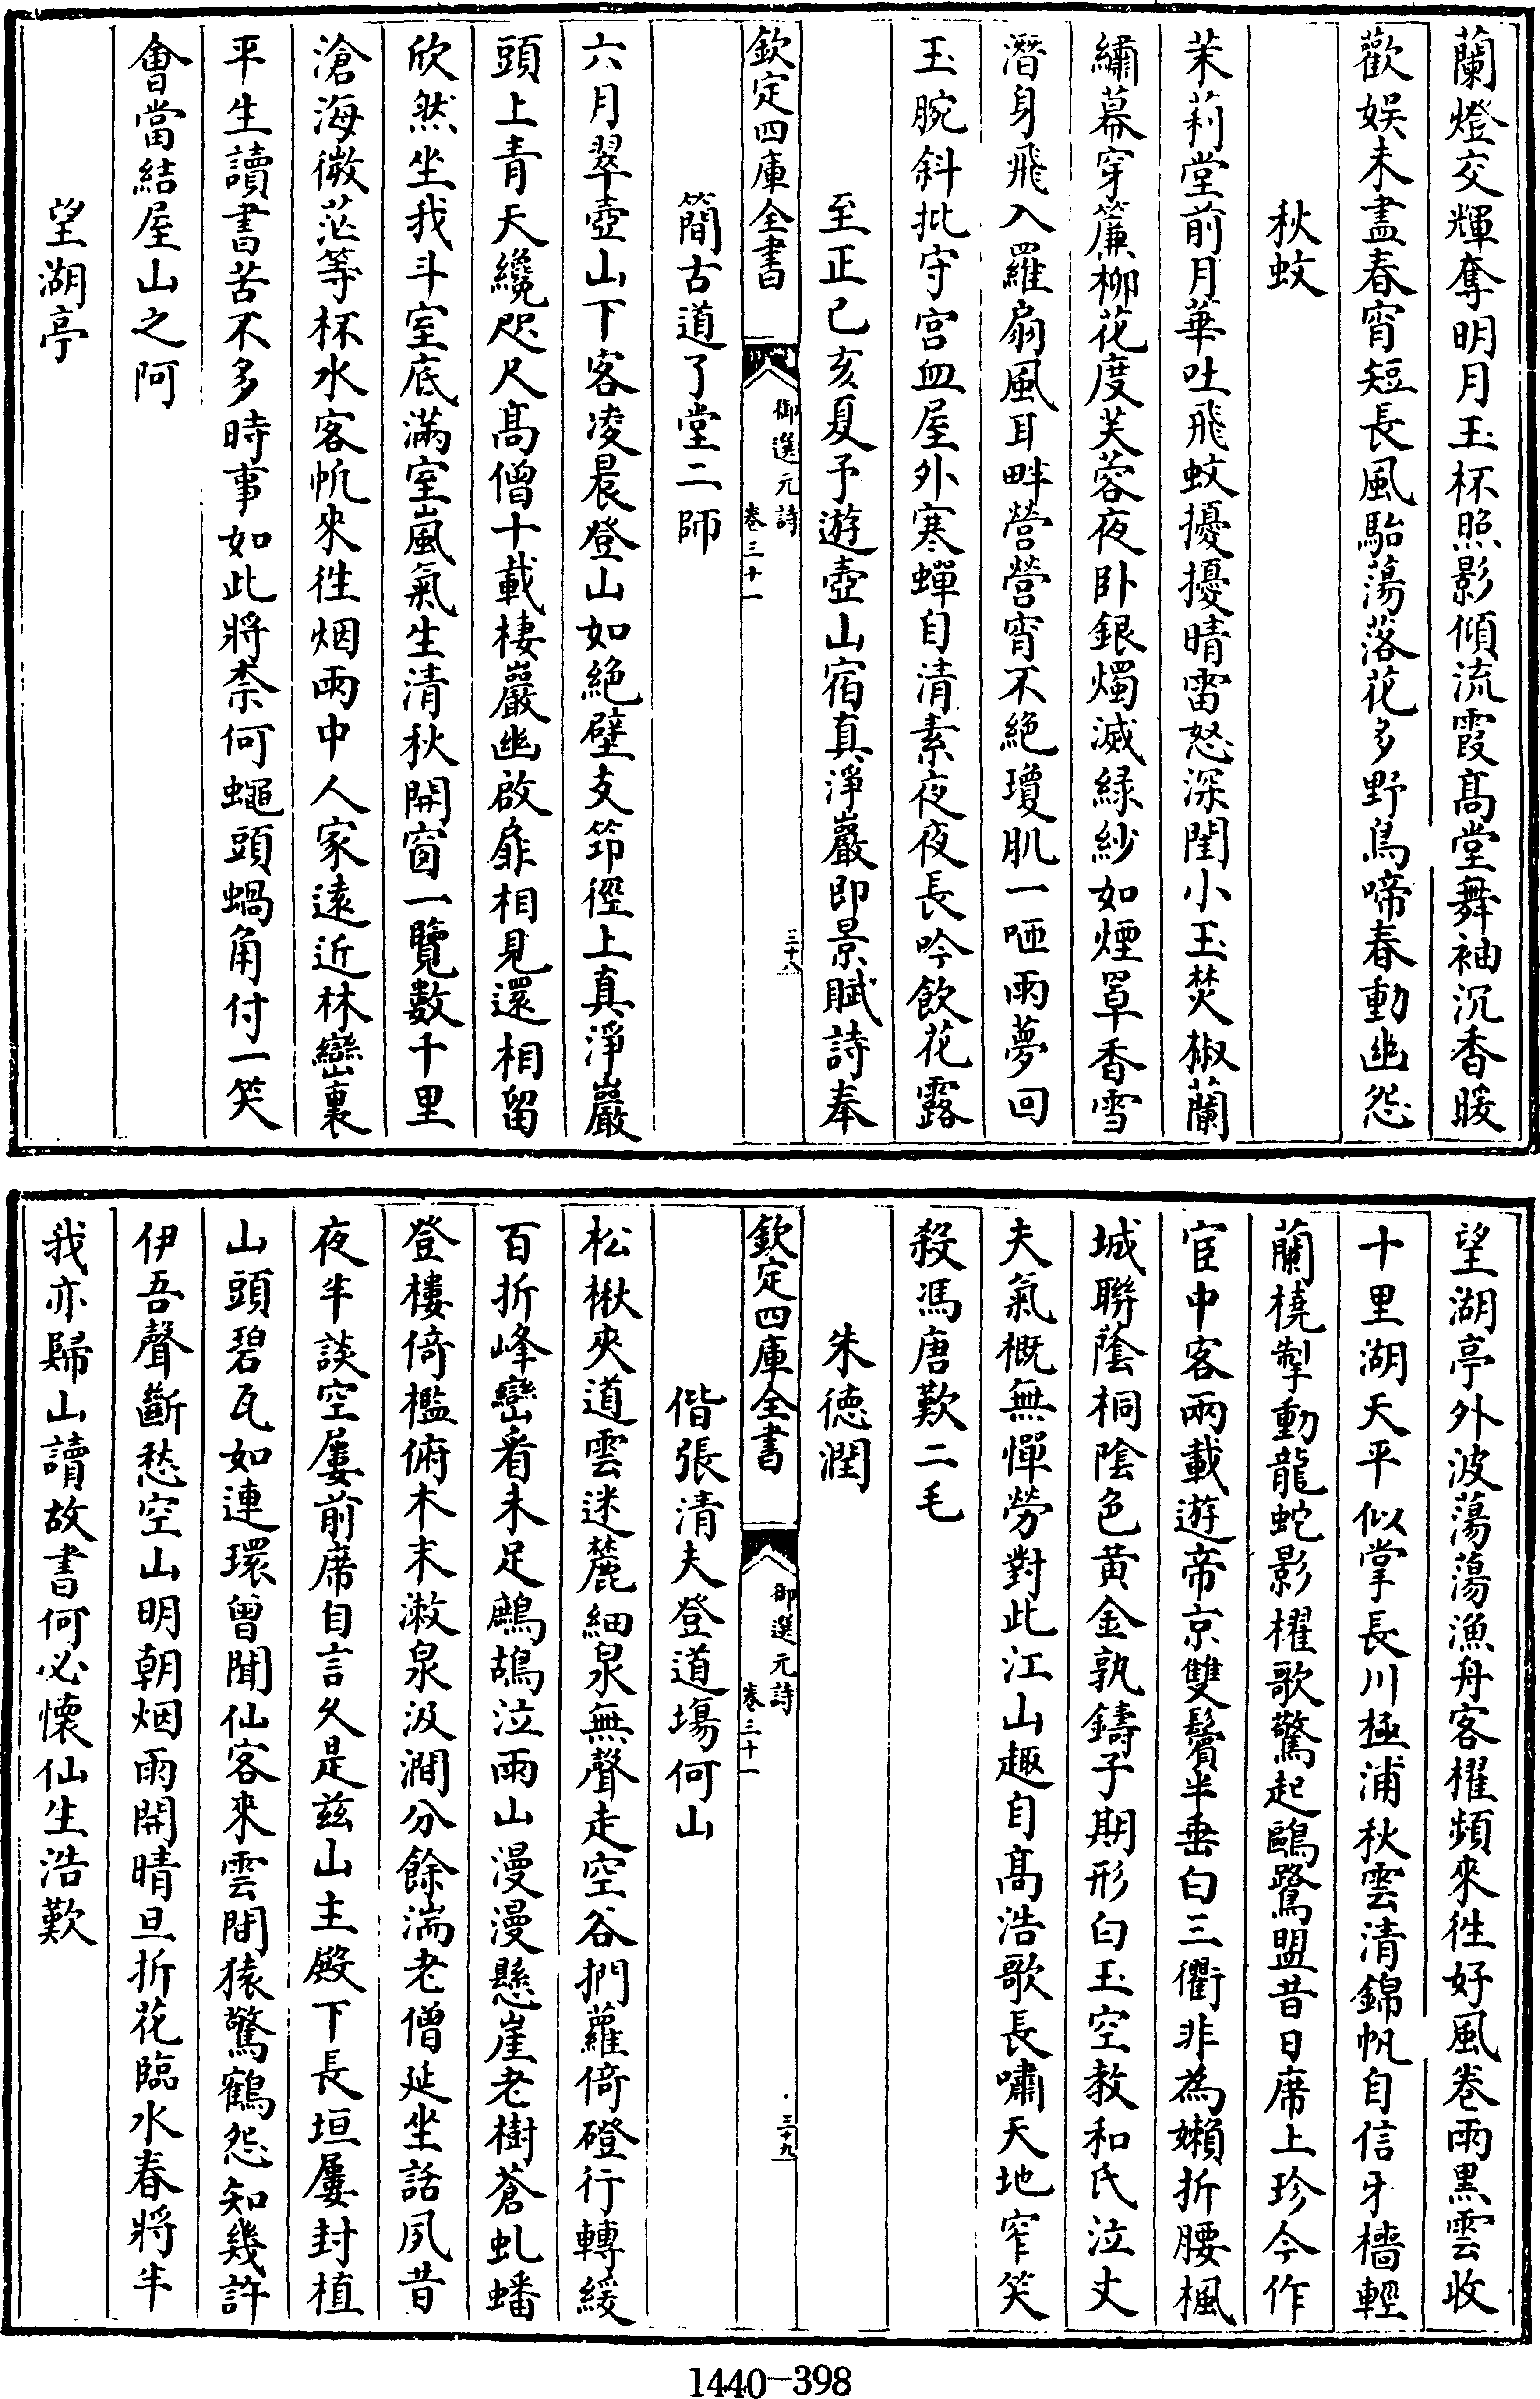 蘭燈交輝奪明月玉杯照影傾流霞高堂舞袖沉香暖
歡娱未盡春宵短長風駘蕩落花多野鳥啼春動幽怨
秋蚊
茉莉堂前月華吐飛蚊擾擾晴雷怒深閨小玉焚椒蘭
繡幕穿簾柳花度芙蓉夜卧銀燭滅緑紗如煙罩香雪
潛身飛入羅扇風耳畔營營宵不絶瓊肌一咂雨夢回
玉腕斜批守宫血屋外寒蟬自清素夜夜長吟飲花露
至正己亥夏予遊壺山宿真淨巖即景賦詩奉
欽定四庫全書
御選元詩
卷三十一
三十八
簡古道了堂二師
六月翠壺山下客凌晨登山如絶壁支笻徑上真淨巖
頭上青天纔咫尺高僧十載棲巖幽啟扉相見還相留
欣然坐我斗室底滿室嵐氣生清秋開窗一覽數千里
滄海微茫等杯水客帆來徃烟雨中人家遠近林巒裏
平生讀書苦不多時事如此將柰何蠅頭蝸角付一笑
會當結屋山之阿
望湖亭
望湖亭外波蕩蕩漁舟客櫂頻來徃好風卷雨黑雲收
十里湖天平似掌長川極浦秋雲清錦帆自信牙檣輕
蘭橈掣動龍蛇影櫂歌驚起鷗鷺盟昔日席上珍今作
宦中客兩載遊帝京雙鬢半垂白三衢非為嬾折腰楓
城聯䕃桐陰色黄金孰鑄子期形白玉空教和氏泣丈
夫氣概無憚勞對此江山趣自高浩歌長嘯天地窄笑
殺馮唐歎二毛
朱徳潤
欽定四庫全書
御選元詩
卷三十一
三十九
偕張清夫登道場何山
松楸夾道雲迷麓細泉無聲走空谷捫蘿倚磴行轉緩
百折峰巒看未足鷓鴣泣雨山漫漫懸崖老樹蒼虬蟠
登樓倚檻俯木末漱泉汲澗分餘湍老僧延坐話夙昔
夜半談空屢前席自言久是兹山主殿下長垣屢封植
山頭碧瓦如連環曾聞仙客來雲間猿驚鶴怨知幾許
伊吾聲斷愁空山明朝烟雨開晴旦折花臨水春將半
我亦歸山讀故書何必懷仙生浩歎
1440-398